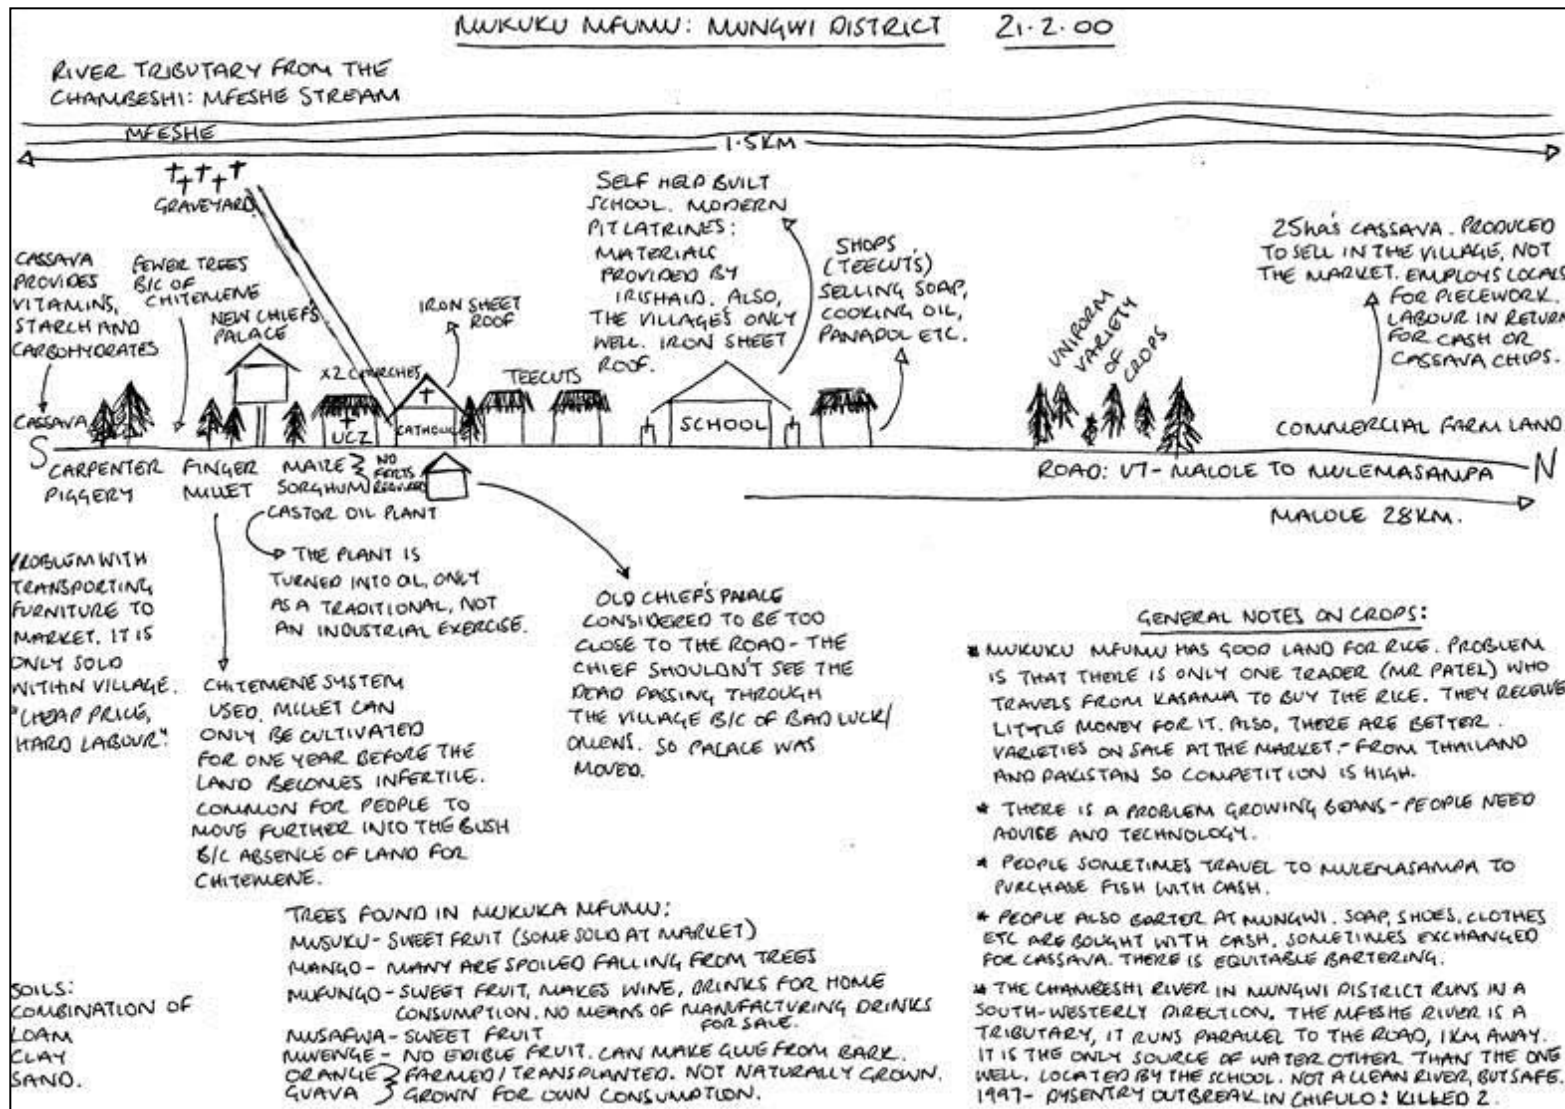 MUKUKU MFUMU: MUNGWI DISTRICT 21.2.00
RIVER TRIBUTARY FROM THE
CHAMBESHI: MFESHE STREAM
MFESHE
1.5KM
GRAVEYARD
CASSAVA
PROVIDES
VITAMINS,
STARCH AND
CARBOHYDRATES
FEWER TREES
B/C OF
CHITEMENE
NEW CHIEF'S
PALACE
X2 CHURCHES
IRON SHEET
ROOF
TEECUTS
SELF HELP BUILT
SCHOOL. MODERN
PIT LATRINES:
MATERIALS
PROVIDED BY
IRISHAID. ALSO,
THE VILLAGE'S ONLY
WELL. IRON SHEET
ROOF.
SHOPS
(TEECUTS)
SELLING SOAP,
COOKING OIL,
PANADOL ETC.
UNIFORM
VARIETY
OF
CROPS
25ha's CASSAVA. PRODUCED
TO SELL IN THE VILLAGE, NOT
THE MARKET. EMPLOYS LOCALS
FOR PIECEWORK.
LABOUR IN RETURN
FOR CASH OR
CASSAVA CHIPS.
CASSAVA
UCZ
CATHOLIC
SCHOOL
COMMERCIAL FARM LAND
S
N
CARPENTER
PIGGERY
FINGER
MILLET
MAIZE
SORGHUM
NO
FERTS
REQUIRED
CASTOR OIL PLANT
ROAD: U7 - MALOLE TO MULEMASAMPA
MALOLE 28KM.
PROBLEM WITH
TRANSPORTING
FURNITURE TO
MARKET. IT IS
ONLY SOLD
WITHIN VILLAGE.
"CHEAP PRICE,
HARD LABOUR".
THE PLANT IS
TURNED INTO OIL, ONLY
AS A TRADITIONAL, NOT
AN INDUSTRIAL EXERCISE.
CHITEMENE SYSTEM
USED. MILLET CAN
ONLY BE CULTIVATED
FOR ONE YEAR BEFORE THE
LAND BECOMES INFERTILE.
COMMON FOR PEOPLE TO
MOVE FURTHER INTO THE BUSH
B/C ABSENCE OF LAND FOR
CHITEMENE.
OLD CHIEF'S PALACE
CONSIDERED TO BE TOO
CLOSE TO THE ROAD - THE
CHIEF SHOULDN'T SEE THE
DEAD PASSING THROUGH
THE VILLAGE B/C OF BAD LUCK/
OMENS. SO PALACE WAS
MOVED.
GENERAL NOTES ON CROPS:
* MUKUKU MFUMU HAS GOOD LAND FOR RICE. PROBLEM
IS THAT THERE IS ONLY ONE TRADER (MR PATEL) WHO
TRAVELS FROM KASAMA TO BUY THE RICE. THEY RECEIVE
LITTLE MONEY FOR IT. ALSO, THERE ARE BETTER
VARIETIES ON SALE AT THE MARKET - FROM THAILAND
AND PAKISTAN SO COMPETITION IS HIGH.
* THERE IS A PROBLEM GROWING BEANS - PEOPLE NEED
ADVISE AND TECHNOLOGY.
* PEOPLE SOMETIMES TRAVEL TO MULEMASAMPA TO
PURCHASE FISH WITH CASH.
* PEOPLE ALSO BARTER AT MUNGWI. SOAP, SHOES, CLOTHES
ETC ARE BOUGHT WITH CASH, SOMETIMES EXCHANGED
FOR CASSAVA. THERE IS EQUITABLE BARTERING.
* THE CHAMBESHI RIVER IN MUNGWI DISTRICT RUNS IN A
SOUTH-WESTERLY DIRECTION. THE MFESHE RIVER IS A
TRIBUTARY, IT RUNS PARALLEL TO THE ROAD, 1KM AWAY.
IT IS THE ONLY SOURCE OF WATER OTHER THAN THE ONE
WELL. LOCATED BY THE SCHOOL. NOT A CLEAN RIVER, BUT SAFE.
1997 - DYSENTRY OUTBREAK IN CHIFULO: KILLED 2.
TREES FOUND IN MUKUKA MFUMU:
MUSUKU - SWEET FRUIT (SOME SOLD AT MARKET)
MANGO - MANY ARE SPOILED FALLING FROM TREES
MUFUNGO - SWEET FRUIT, MAKES WINE, DRINKS FOR HOME
CONSUMPTION. NO MEANS OF MANUFACTURING DRINKS
FOR SALE.
MUSAFWA - SWEET FRUIT
MWENGE - NO EDIBLE FRUIT. CAN MAKE GLUE FROM BARK.
ORANGE } FARMED/TRANSPLANTED. NOT NATURALLY GROWN.
GUAVA } GROWN FOR OWN CONSUMPTION.
SOILS:
COMBINATION OF
LOAM
CLAY
SAND.